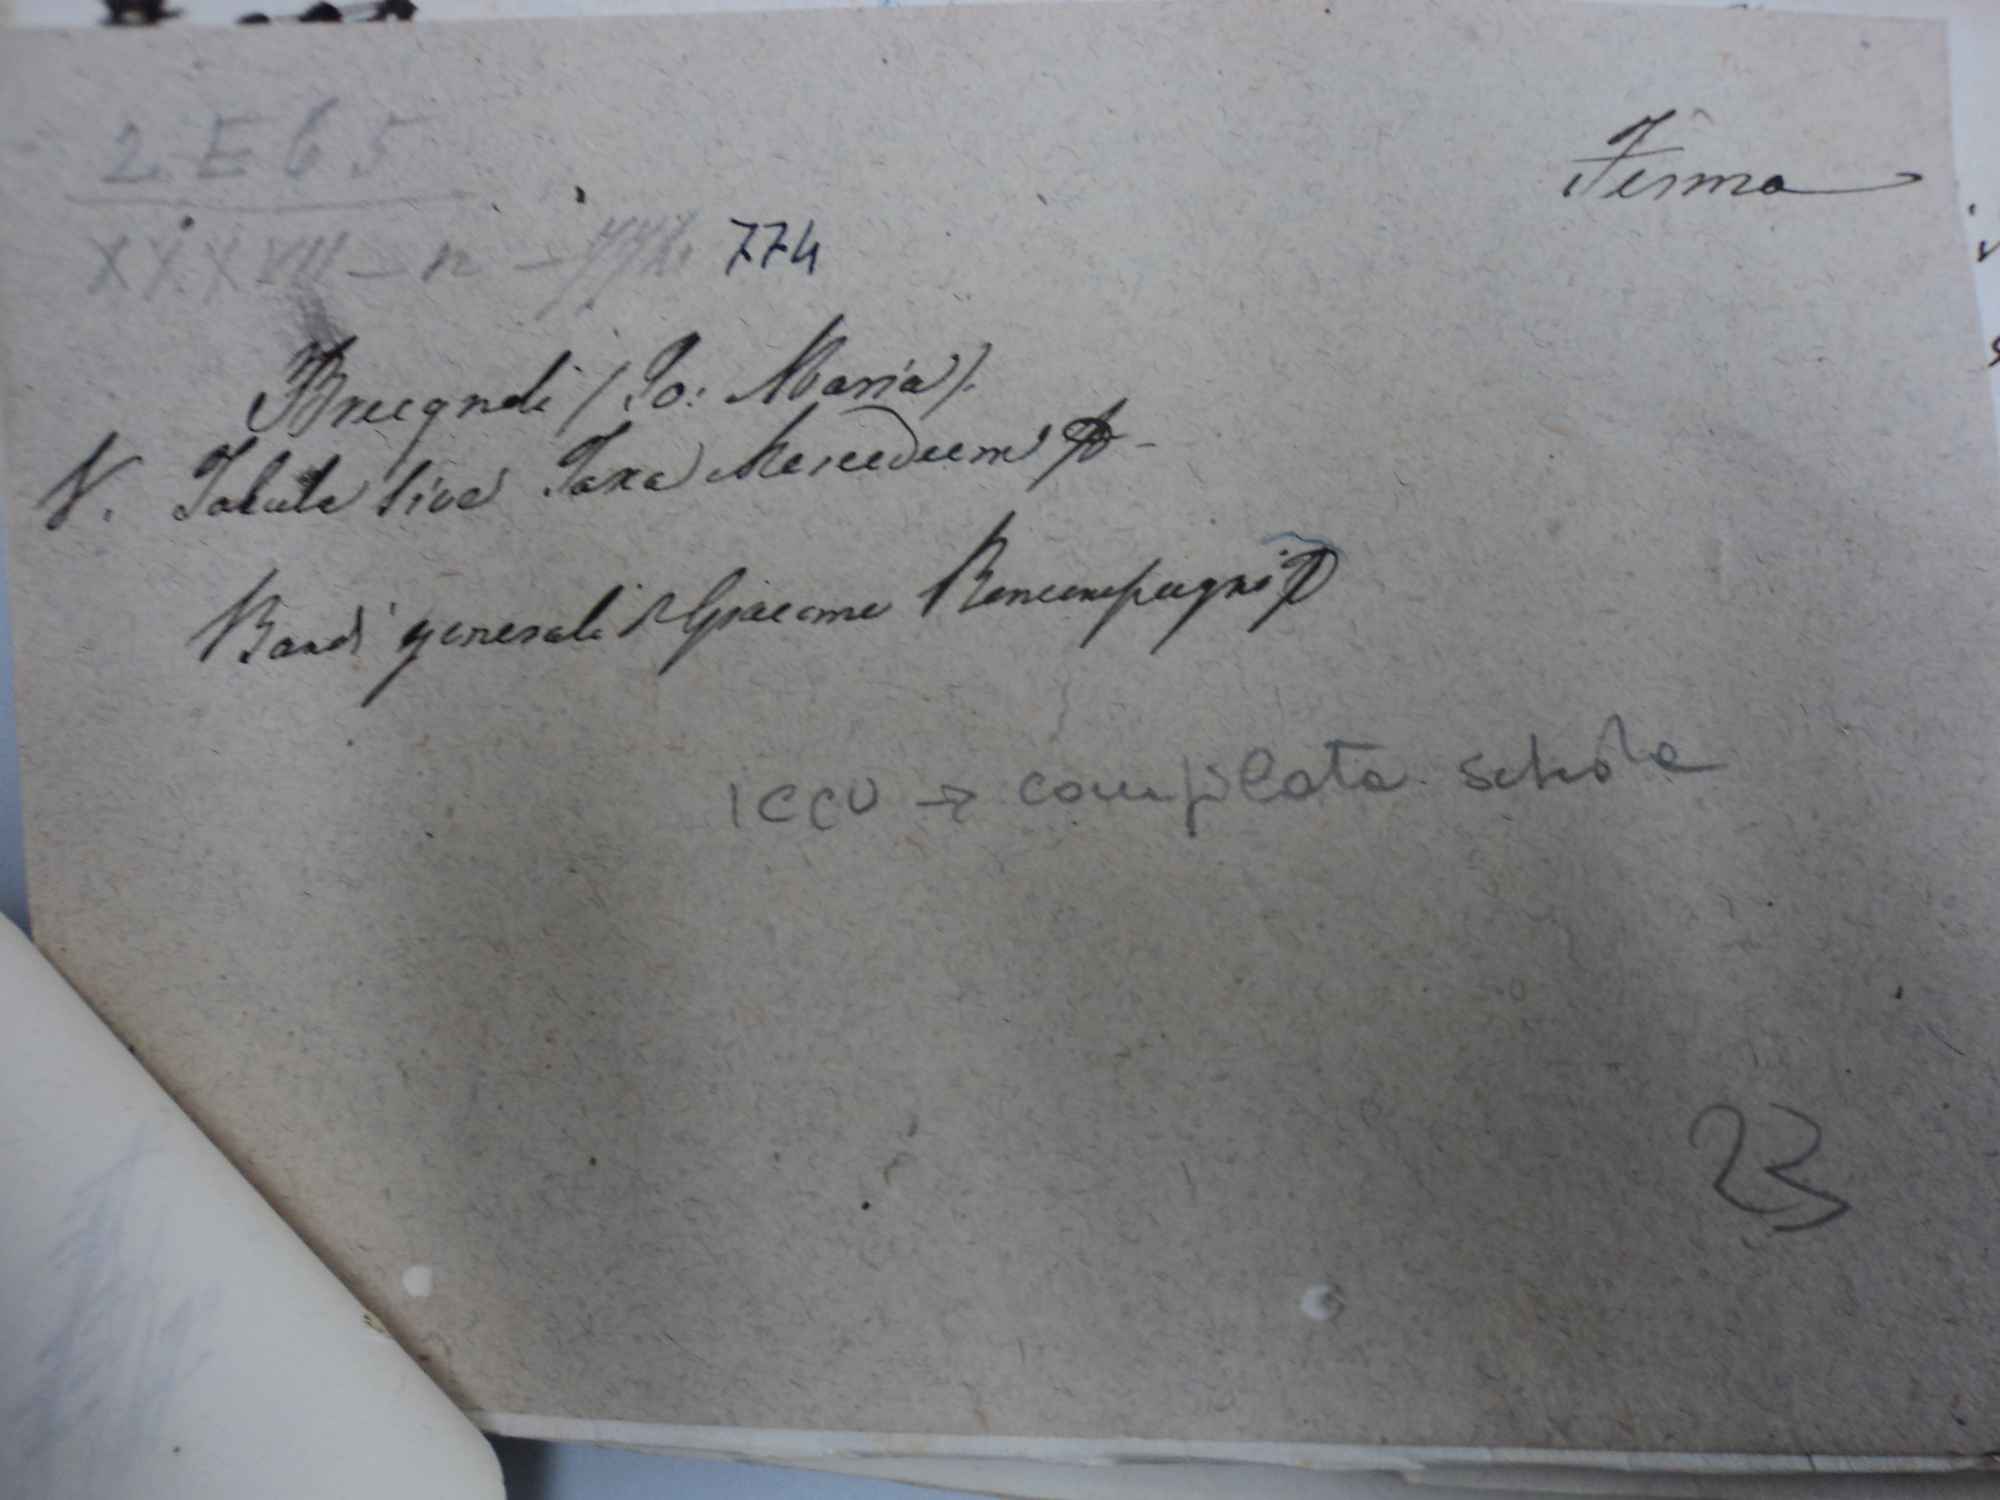 2 E 65
Fermo
XXXVII - n - 774
Brugnoli (Jo: Maria).
V. Tabula sive Taxa Mercedum
Bandi generali Giacomo Boncompagni
ICCU → compilata scheda
23